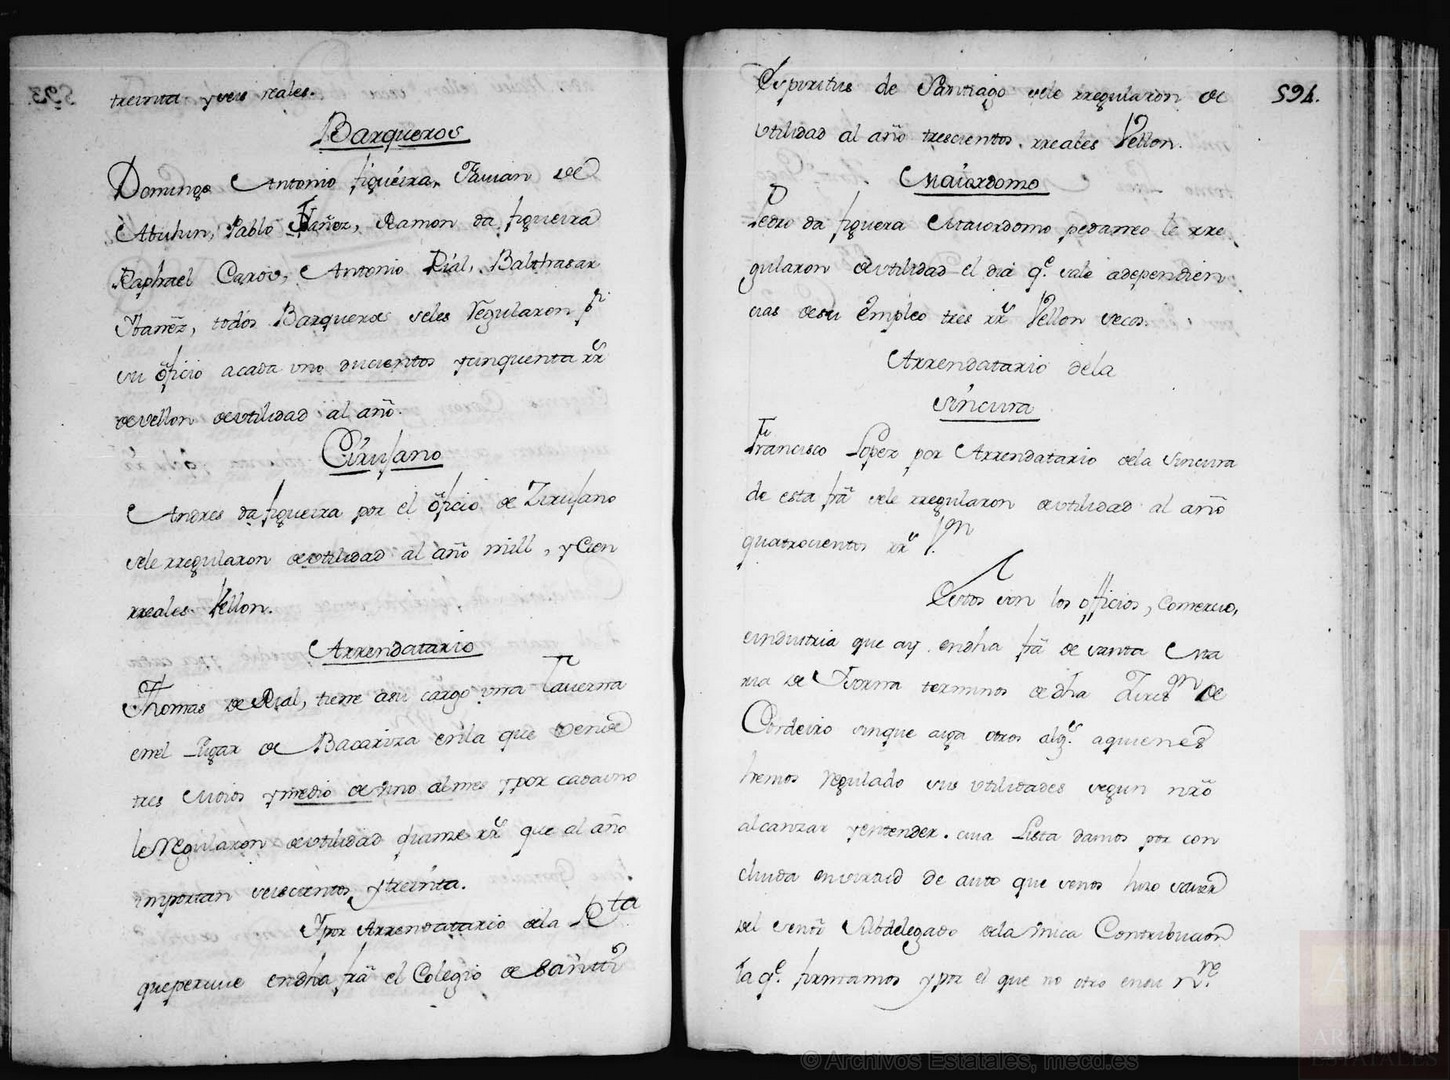 treinta y seis reales.
Barqueros
Domingo Antonio figueira, Favian de
Abuhin, Pablo Ibañez, Ramon da figueira
Raphael Caroo, Antonio Rial, Balthasar
Ibañez, todos Barqueros seles Regularon pr
su oficio acada uno ducientos ycinquenta rrs
devellon deutilidad al año.
Cirujano
Andres da figueira por el oficio de Zirujano
sele rregularon deutilidad al año mill, y Cien
rreales Vellon.
Arrendatario
Thomas de Rial, tiene asu cargo una Taverna
enel Lugar de Bacariza enla que vende
tres Moios ymedio de vino al mes ypor cadauno
le Regularon deutilidad quince rrs que al año
importan seiscientos ytreinta.
Ypor Arrendatario dela Rta
quepercive endha fra el Colegio de Santti
Espiritus de Santiago sele rregularon de
utilidad al año trescientos rreales Vellon.
594.
Maiordomo
Pedro da figuera Maiordomo pedaneo le rre
gularon deutilidad el dia qe. vale adependien
cias desu Empleo tres rrs Vellon secos.
Arrendatario dela
Sincura
Francisco Lopez por Arrendatario dela Sincura
de esta fra sele rregularon deutilidad al año
quatrocientos rrs Von
Estos son los officios, Comercio,
eindustria que ay endha fra de santa Ma
ria de terminos dedha Juris on de
Cordeiro sinque aiga otros algs. aquienes
hemos regulado sus utilidades segun nro
alcanzar yentender. cuia Lista damos por con
cluida envirtud de auto que senos hizo saver
del señor Subdelegado dela Unica Contribucion
la qe. firmamos ypor el que no otro ensu Nre.
593.